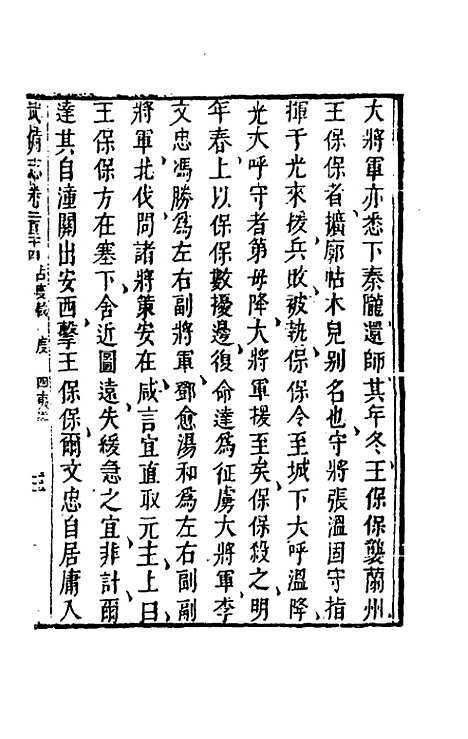 大將軍亦悉下秦隴還師其年冬王保保襲蘭州
王保保者擴廓帖木兒别名也守將張溫固守指
揮于光來援兵敗被執保保令至城下大呼溫降
光大呼守者第毋降大將軍援至矣保保殺之明
年春上以保保數擾邊復命達爲征虜大將軍李
文忠馮勝爲左右副將軍鄧愈湯和爲左右副副
將軍北伐問諸將策安在咸言宜直取元主上曰
王保保方在塞下舍近圖遠失緩急之宜非計爾
達其自潼關出安西擊王保保爾文忠自居庸入
武備志卷二百二十四 占度載 度 四夷